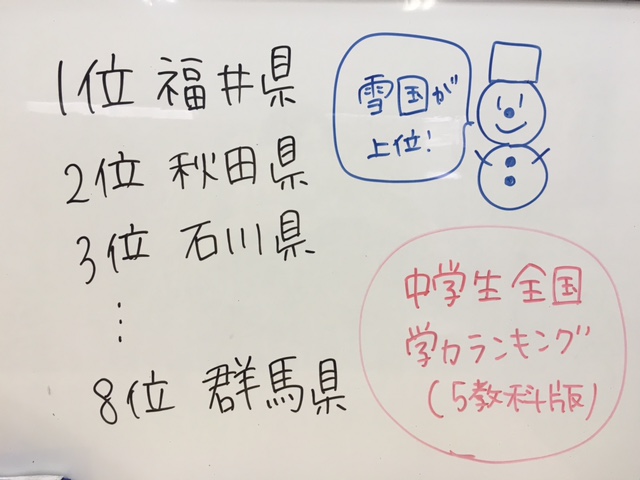 1位 福井県
2位 秋田県
3位 石川県
⋮
8位 群馬県
雪国が
上位!
中学生全国
学力ランキング
(5教科版)